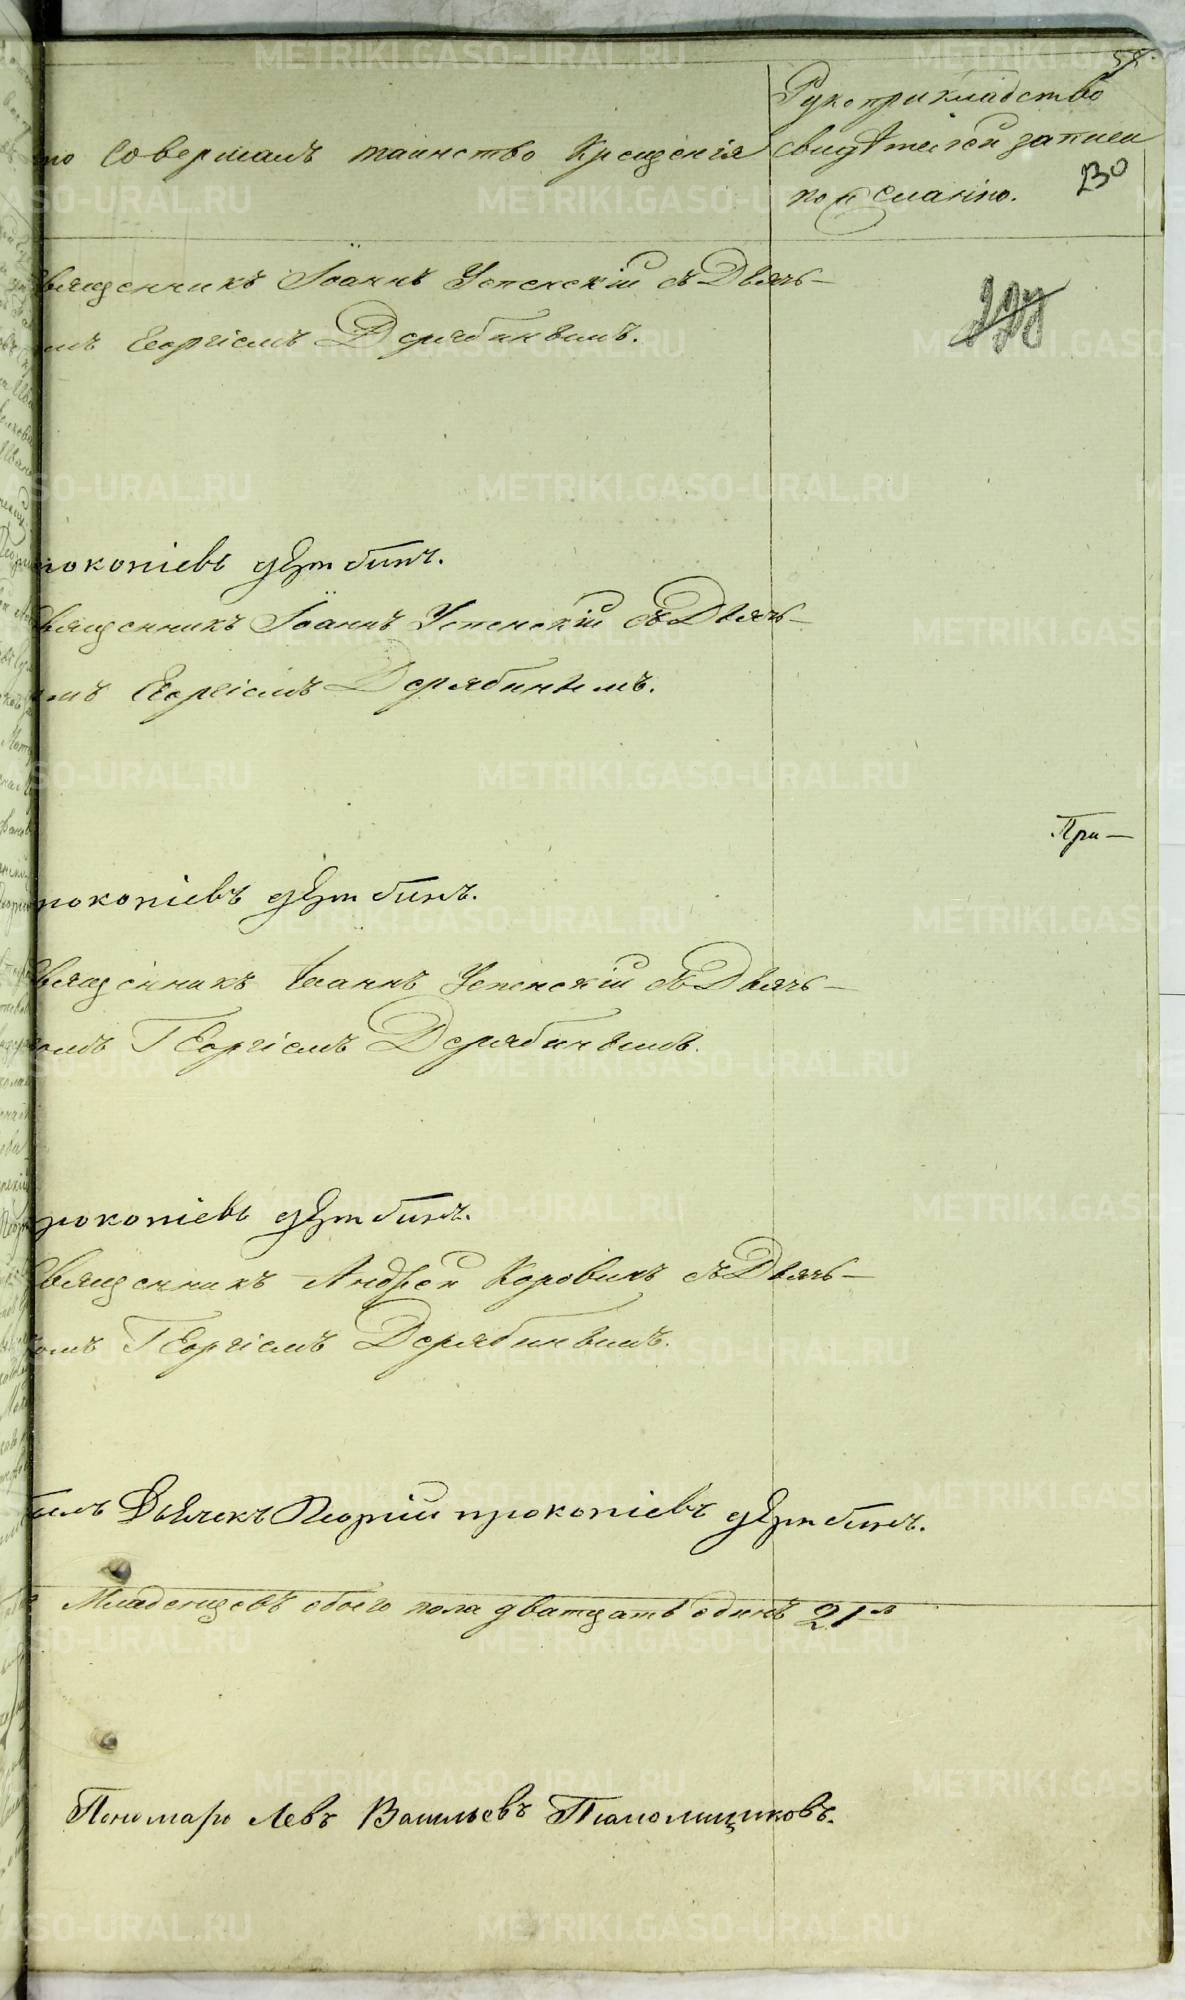 58.
Рукоприкладство
то совершалъ таинство Крещенія
свидѣтелей записи
230
по желанію.
Священникъ Іоаннъ Успенскій съ Дьяч-
омъ Георгіемъ Дерябинымъ.
Прокопіевъ дерябинъ.
Священникъ Іоаннъ Успенскій съ Дьяч-
омъ Георгіемъ Дерябинымъ.
При-
Прокопіевъ дерябинъ.
Священникъ Іоаннъ Успенскій съ Дьяч-
комъ Георгіемъ Дерябинымъ.
Прокопіевъ дерябинъ.
Священникъ Андрей Коровинъ съ Дьяч-
комъ Георгіемъ Дерябинымъ.
былъ Дьячекъ Георгій прокопіевъ дерябинъ.
Младенцевъ обоего пола дватцать одинъ 21
Пономарь Левъ Васильевъ
METRIKI.GASO-URAL.RU